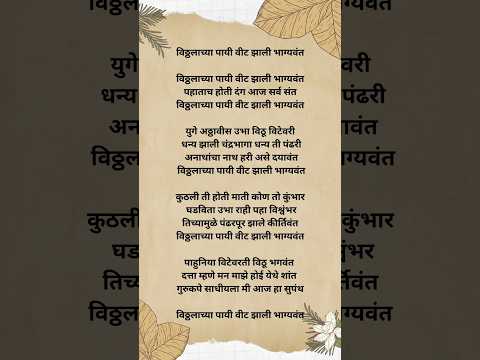 विठ्ठलाच्या पायी वीट झाली भाग्यवंत
विठ्ठलाच्या पायी वीट झाली भाग्यवंत
पहाताच होती दंग आज सर्व संत
विठ्ठलाच्या पायी वीट झाली भाग्यवंत
युगे अठ्ठावीस उभा विठू विटेवरी
धन्य झाली चंद्रभागा धन्य ती पंढरी
अनाथांचा नाथ हरी असे दयावंत
विठ्ठलाच्या पायी वीट झाली भाग्यवंत
कुठली ती होती माती कोण तो कुंभार
घडविता उभा राही पहा विश्वंभर
तिच्यामुळे पंढरपूर झाले कीर्तिवंत
विठ्ठलाच्या पायी वीट झाली भाग्यवंत
पाहुनिया विटेवरती विठू भगवंत
दत्ता म्हणे मन माझे होई येथे शांत
गुरुकृपे साधीयला मी आज हा सुपंथ
विठ्ठलाच्या पायी वीट झाली भाग्यवंत
कु
घड
तिच्य
विठ्ठ